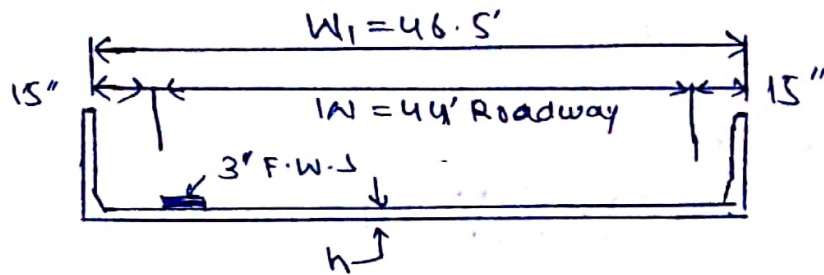 W₁ = 46.5'
15"
W = 44' Roadway
15"
3" F.W.S
h